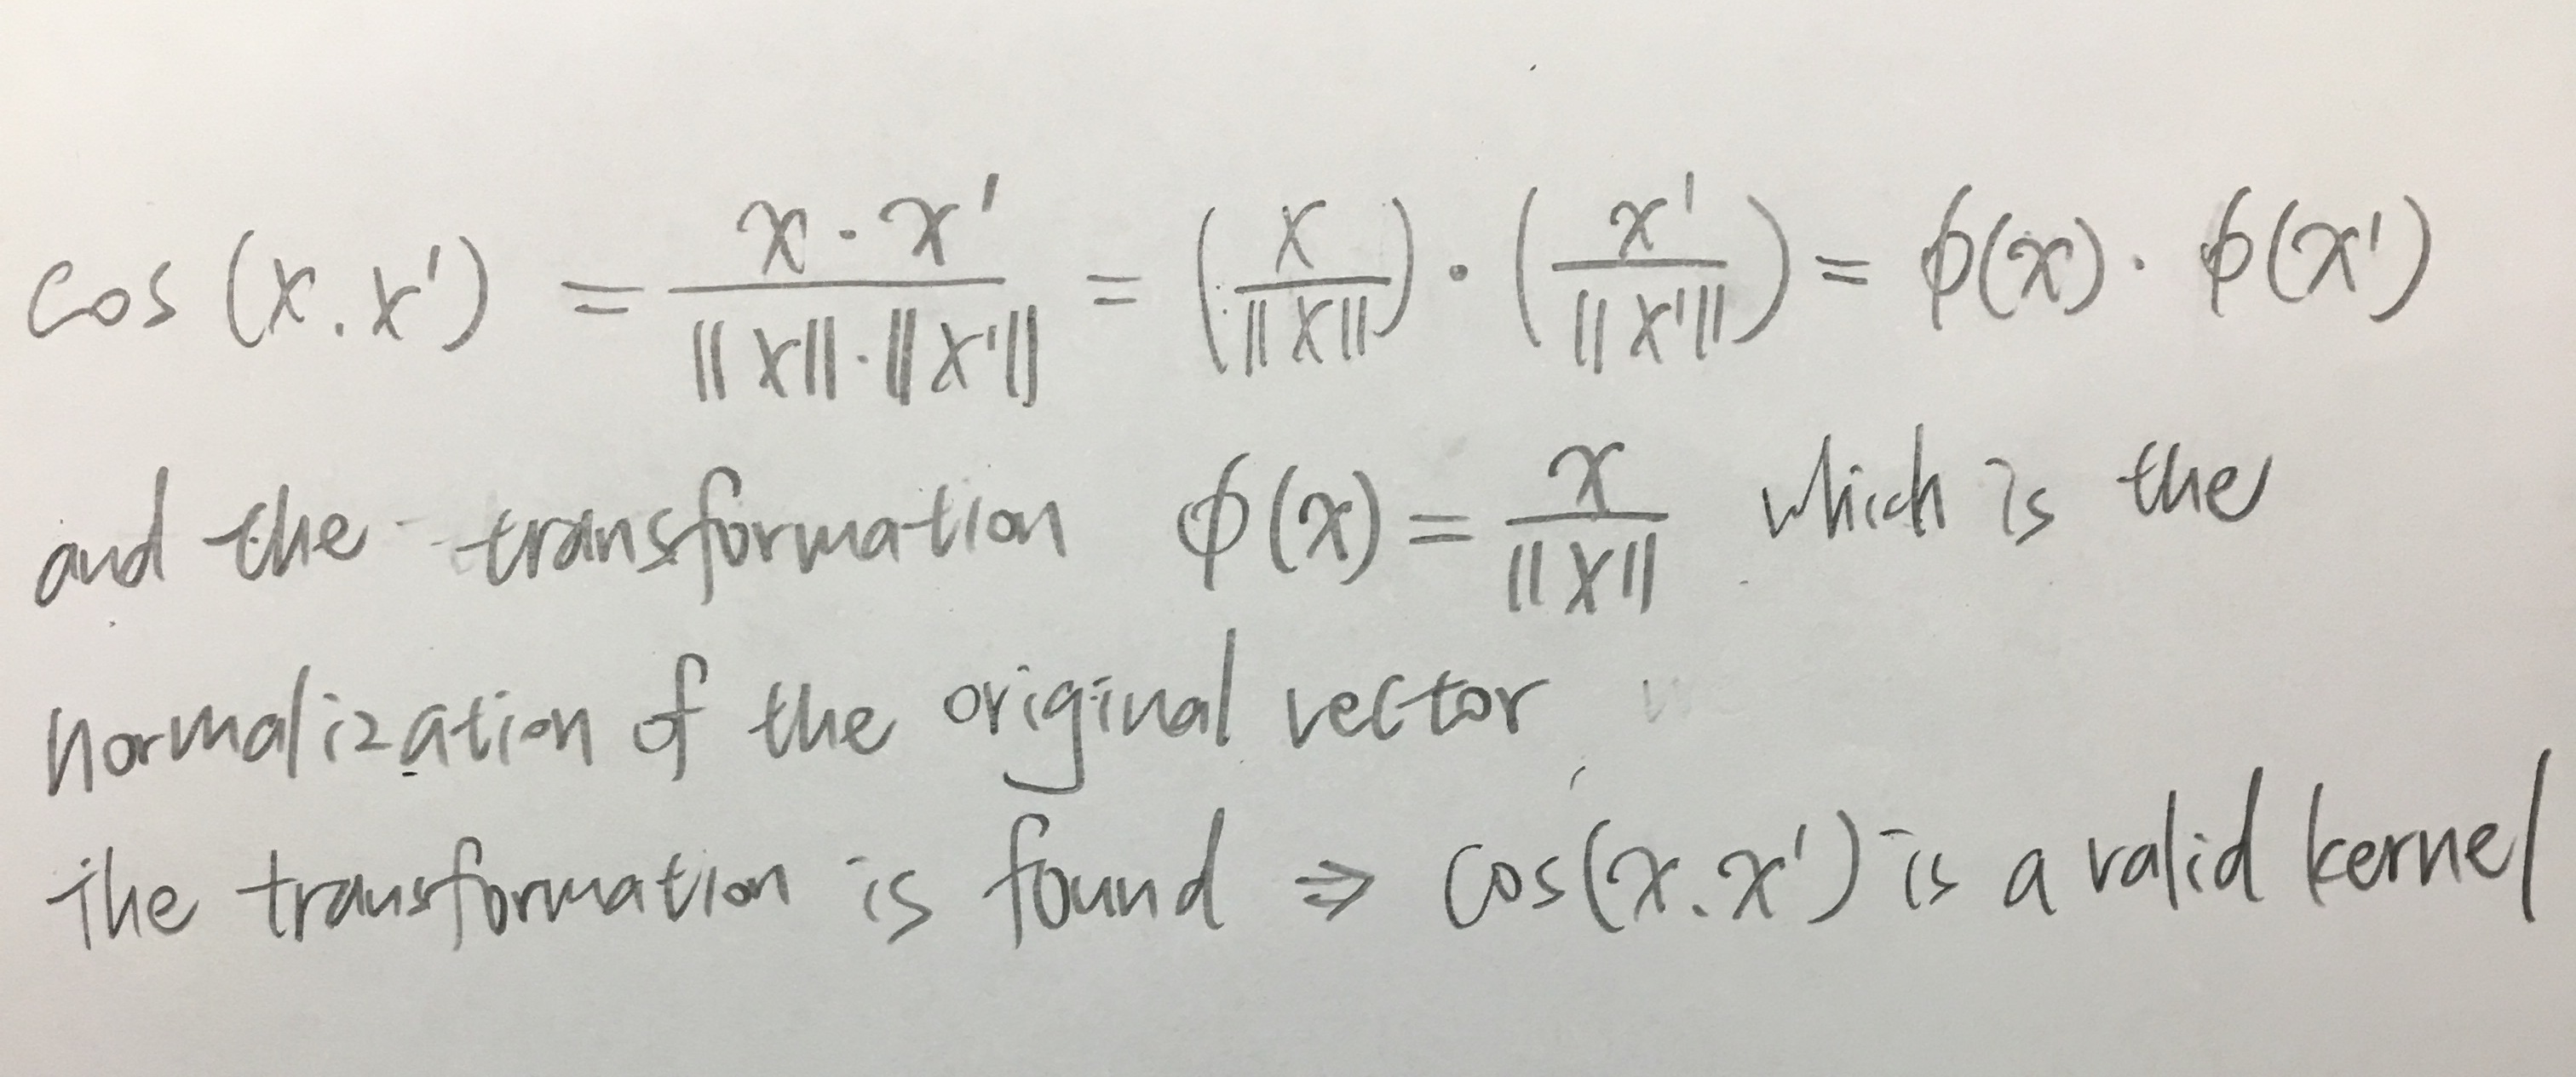 cos (x.x') = x·x' / ||x||·||x'|| = (x / ||x||) · (x' / ||x'||) = ϕ(x) · ϕ(x')
and the transformation ϕ(x) = x / ||x|| which is the
normalization of the original vector,
the transformation is found ⇒ cos(x.x') is a valid kernel